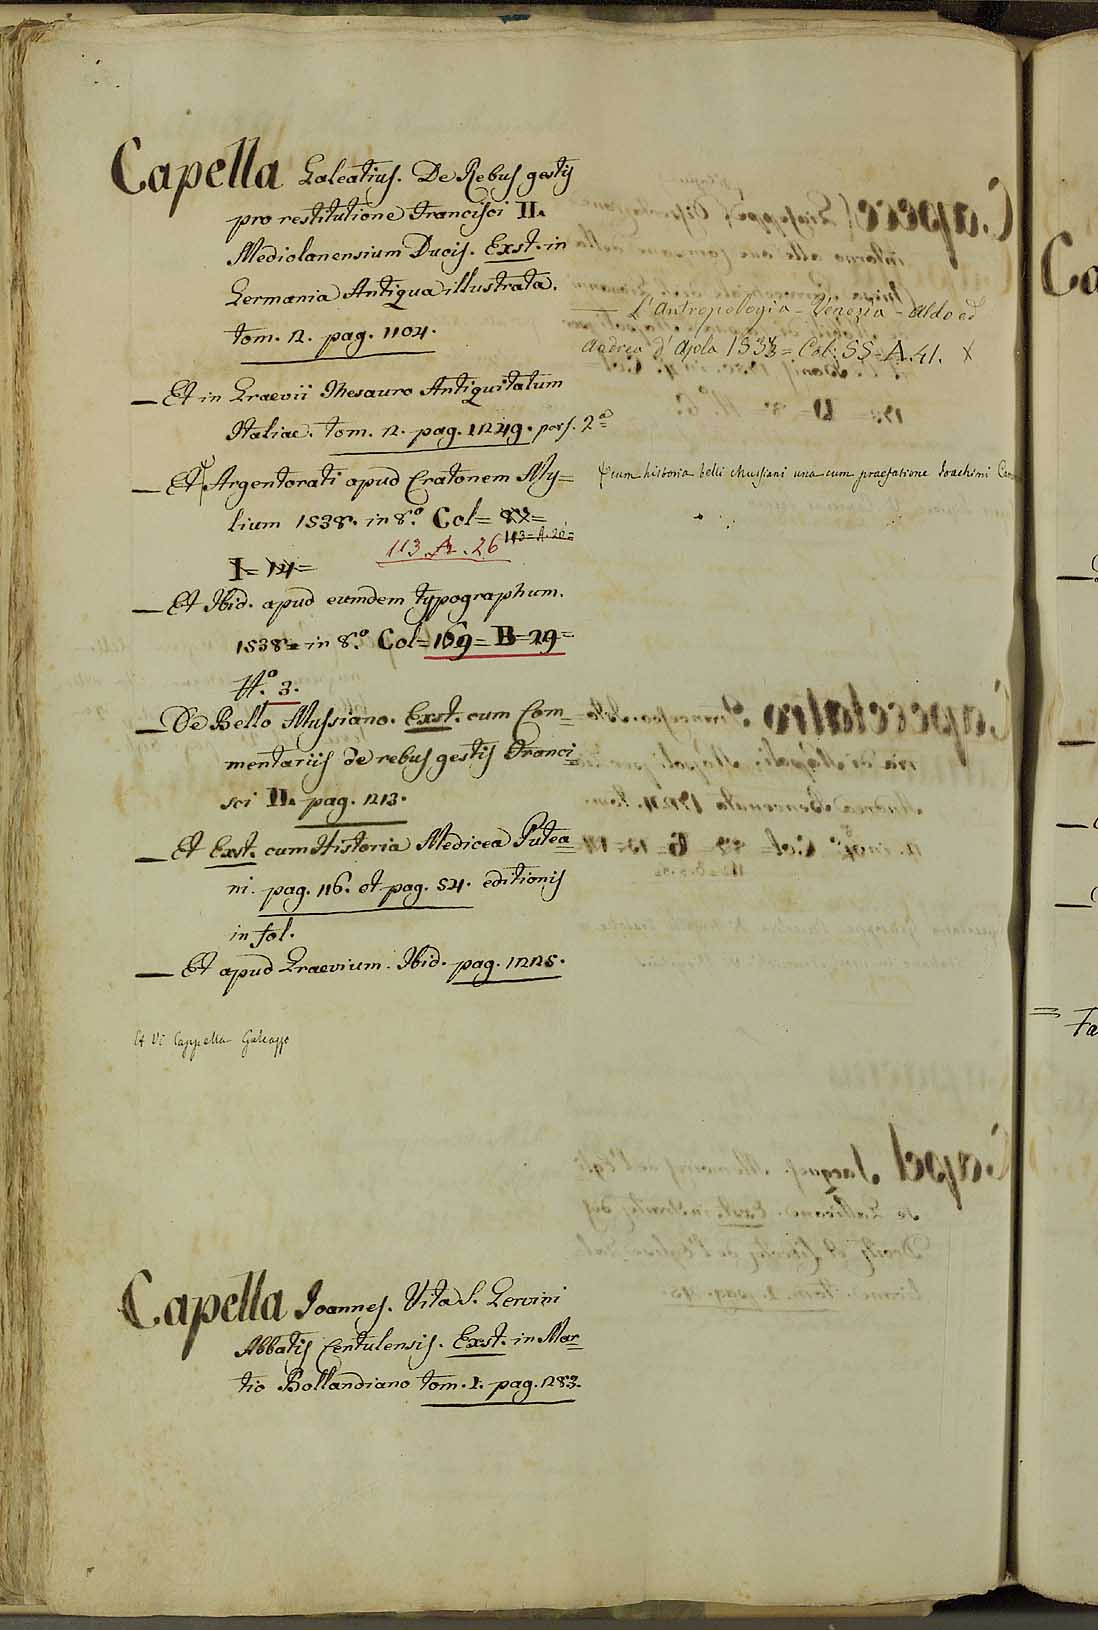 Capella Galeatius. De Rebus gestis
pro restitutione Francisci II.
Mediolanensium Ducis. Exst. in
Germania Antiqua illustrata.
tom. 2. pag. 1104.
— Et in Graevii Thesauro Antiquitatum
Italiae. tom. 2. pag. 1249. pars. 2ª
— Et Argentorati apud Cratonem My=
lium 1538. in 8.º Col=
113=A.26=
113.A.26
I=
— Et Ibid. apud eumdem typographum.
1538= in 8.º Col=169=B=29=
N.º 3.
— De Bello Mussiano. Exst. cum Com=
mentariis de rebus gestis Franci=
sci II. pag. 1213.
— Et Exst. cum Historia Medicea Putea=
ni. pag. 116. et pag. 54. editionis
in fol.
— Et apud Graevium. Ibid. pag. 1225.
Et Vi Cappella Galeazzo
— L'Antropologia - Venezia - Aldo ed
Andrea d'Asola 1533= Col. 55=A.41. X
cum historia belli Mussiani una cum praefatione Joachimi
Capella Joannes. Vita S. Gervini
Abbatis Centulensis. Exst. in Mar=
tio Bollandiano tom. 1. pag. 283.